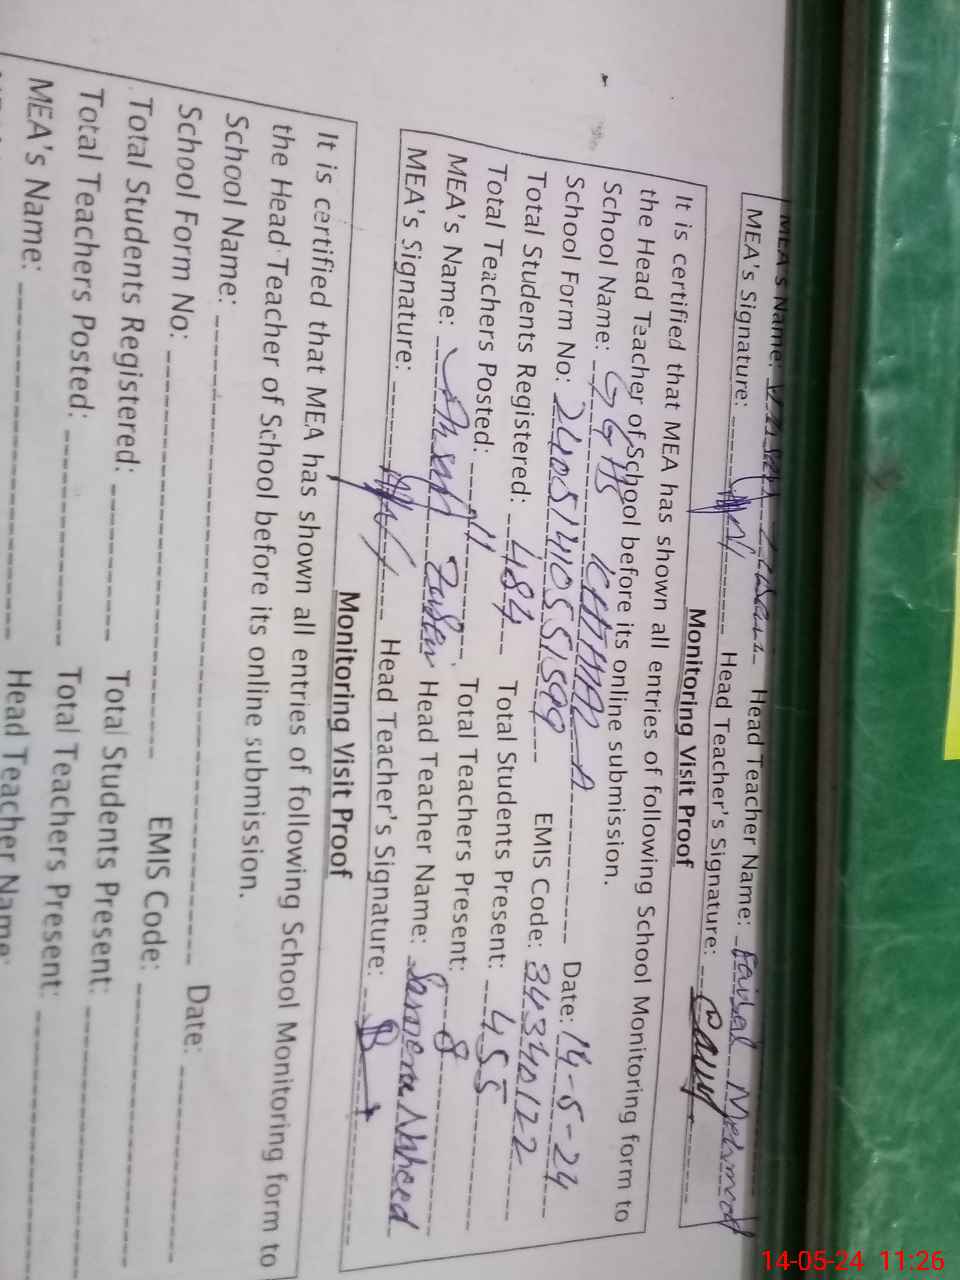 MEA's Name: Head Teacher Name: Faisal Mehmood
MEA's Signature: Head Teacher's Signature:
Monitoring Visit Proof
It is certified that MEA has shown all entries of following School Monitoring form to
the Head Teacher of School before its online submission.
School Name: GGHS Date: 14-5-24
School Form No: EMIS Code: 34340122
Total Students Registered: 484 Total Students Present: 455
Total Teachers Posted: 11 Total Teachers Present: 8
MEA's Name: Head Teacher Name: Naheed
MEA's Signature: Head Teacher's Signature:
Monitoring Visit Proof
It is certified that MEA has shown all entries of following School Monitoring form to
the Head Teacher of School before its online submission.
School Name: Date:
School Form No: EMIS Code:
Total Students Registered: Total Students Present:
Total Teachers Posted: Total Teachers Present:
MEA's Name: Head Teacher Name:
14-05-24 11:26